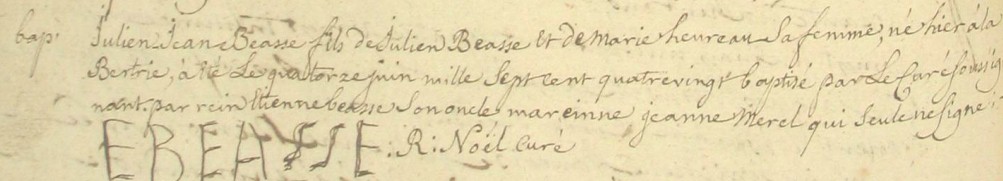 bap. Julien Jean Beasse fils de Julien Beasse et de Marie heureau Sa femme, né hier à la
Bertrie, à été Le quatorze juin mille Sept cent quatrevingt baptisé par Le Curé soussig
nant. parrein Etienne beasse Son oncle mareinne jeanne Merel qui Seule ne signe.
E BEASSE . R: Noël Curé